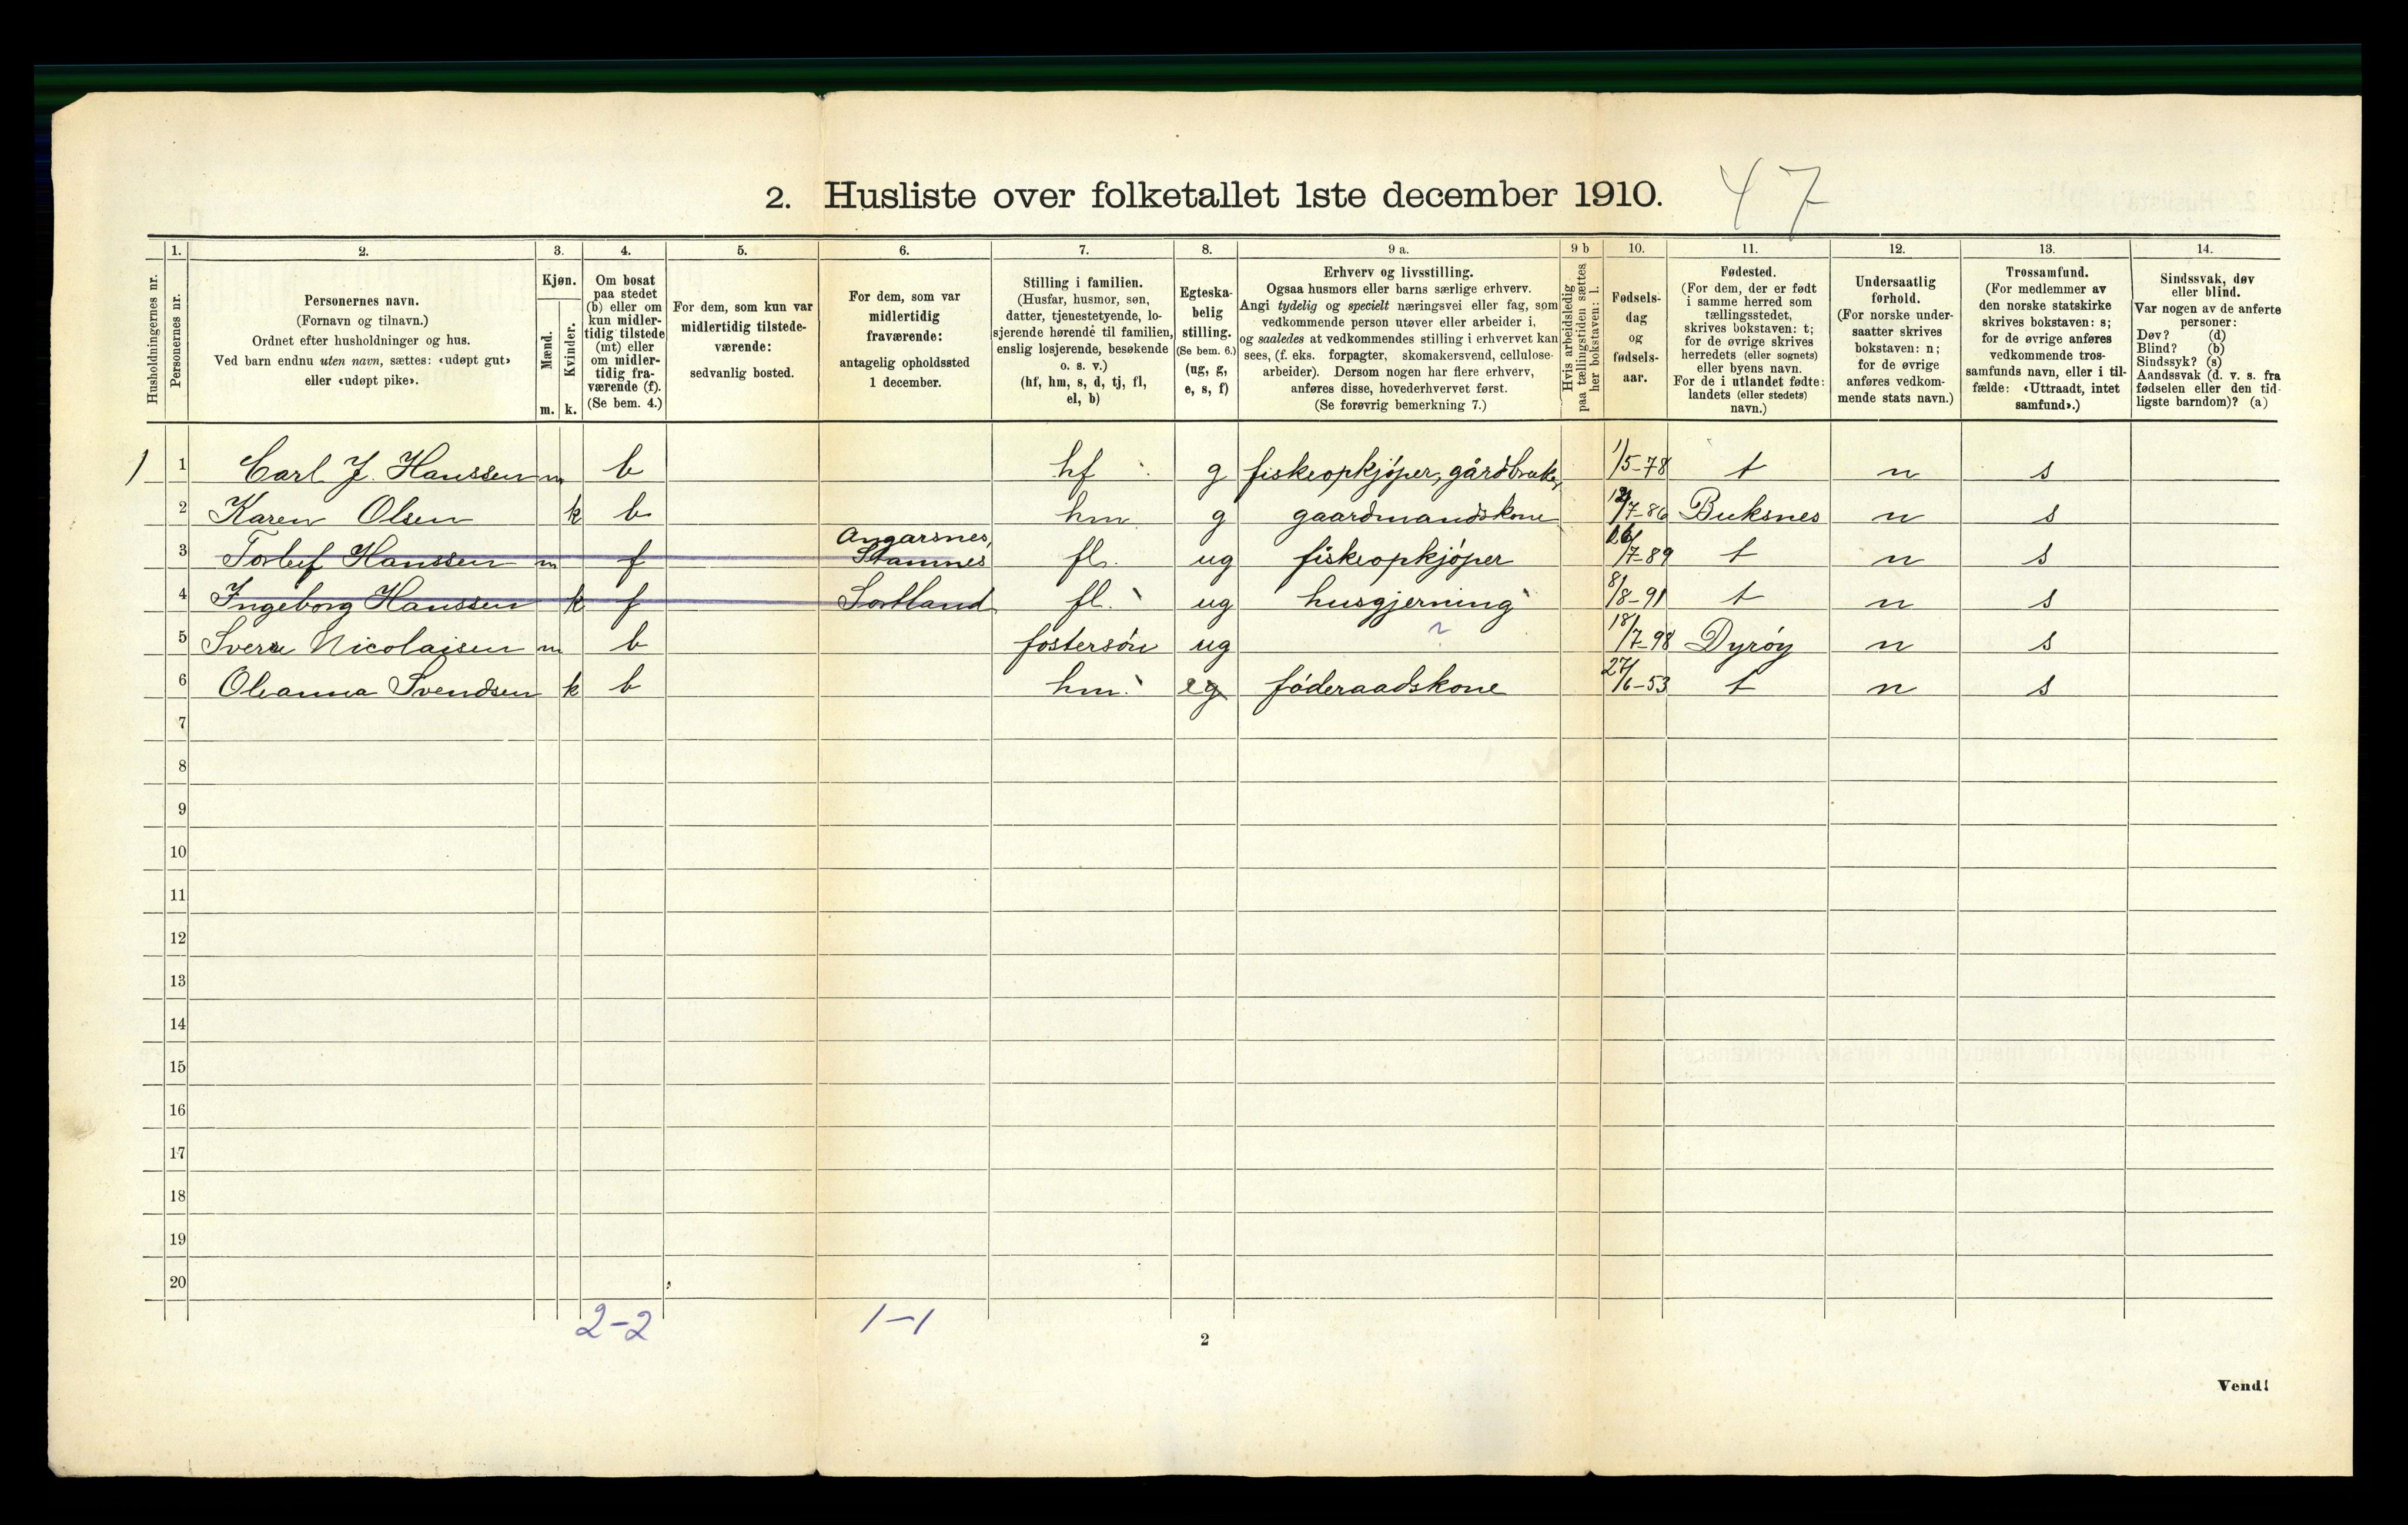 2. Husliste over folketallet 1ste december 1910. 47
Husholdningernes nr.
1. Personernes nr.
2. Personernes navn.
(Fornavn og tilnavn.)
Ordnet efter husholdninger og hus.
Ved barn endnu uten navn, sættes: «udøpt gut»
eller «udøpt pike».
3. Kjøn.
Mænd. Kvinder.
m. k.
4. Om bosat
paa stedet
(b) eller om
kun midler-
tidig tilstede
(mt) eller
om midler-
tidig fra-
værende (f).
(Se bem. 4.)
5. For dem, som kun var
midlertidig tilstede-
værende:
sedvanlig bosted.
6. For dem, som var
midlertidig
fraværende:
antagelig opholdssted
1 december.
7. Stilling i familien.
(Husfar, husmor, søn,
datter, tjenestetyende, lo-
sjerende hørende til familien,
enslig losjerende, besøkende
o. s. v.)
(hf, hm, s, d, tj, fl,
el, b)
8. Egteska-
belig
stilling.
(Se bem. 6.)
(ug, g,
e, s, f)
9 a. Erhverv og livsstilling.
Ogsaa husmors eller barns særlige erhverv.
Angi tydelig og specielt næringsvei eller fag, som
vedkommende person utøver eller arbeider i,
og saaledes at vedkommendes stilling i erhvervet kan
sees, (f. eks. forpagter, skomakersvend, cellulose-
arbeider). Dersom nogen har flere erhverv,
anføres disse, hovederhvervet først.
(Se forøvrig bemerkning 7.)
9 b Hvis arbeidsledig
paa tællingstiden sættes
her bokstaven: l.
10. Fødsels-
dag
og
fødsels-
aar.
11. Fødested.
(For dem, der er født
i samme herred som
tællingsstedet,
skrives bokstaven: t;
for de øvrige skrives
herredets (eller sognets)
eller byens navn.
For de i utlandet fødte:
landets (eller stedets)
navn.)
12. Undersaatlig
forhold.
(For norske under-
saatter skrives
bokstaven: n;
for de øvrige
anføres vedkom-
mende stats navn.)
13. Trossamfund.
(For medlemmer av
den norske statskirke
skrives bokstaven: s;
for de øvrige anføres
vedkommende tros-
samfunds navn, eller i til-
fælde: «Uttraadt, intet
samfund».)
14. Sindssvak, døv
eller blind.
Var nogen av de anførte
personer:
Døv? (d)
Blind? (b)
Sindssyk? (s)
Aandssvak (d. v. s. fra
fødselen eller den tid-
ligste barndom)? (a)
1 1 Carl J. Hanssen m b hf g fiskeopkjøper, gårdbruker 1/5-78 t n s
2 Karen Olsen k b hm g gaardmandskone 7-86 Buksnes n s
3 Torleif Hanssen m f Angarsnes, Stamnes fl. ug fiskeopkjøper 26/7-89 t n s
4 Ingeborg Hanssen k f Sortland fl. ug husgjerning 8/8-91 t n s
5 Sverre Nicolaisen m b fostersøn ug ? 18/7-98 Dyrøy n s
6 Oleanna Svendsen k b hm. eg føderaadskone 27/6-53 t n s
7
8
9
10
11
12
13
14
15
16
17
18
19
20
2-2 1-1
2
Vend!